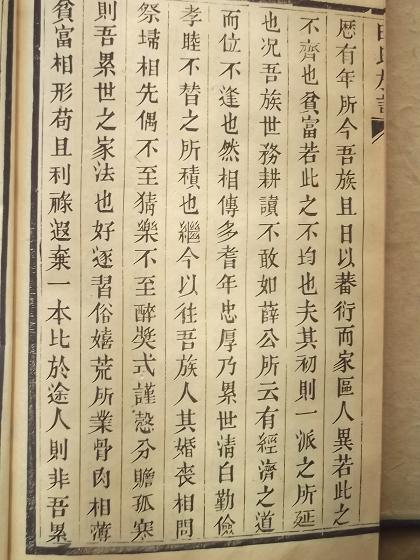 歷有年所今吾族且日以蕃衍而家區人異若此之
不齊也貧富若此之不均也夫其初則一派之所延
也况吾族世務耕讀不敢如薛公所云有經濟之道
而位不逢也然相傳多耆年忠厚乃累世清白勤儉
孝睦不替之所積也繼今以往吾族人其婚喪相問
祭埽相先偶不至猜樂不至醉奬式謹愨分贍孤寒
則吾累世之家法也好逐習俗嬉荒所業骨肉相薄
貧富相形苟且利祿遐棄一本比於途人則非吾累